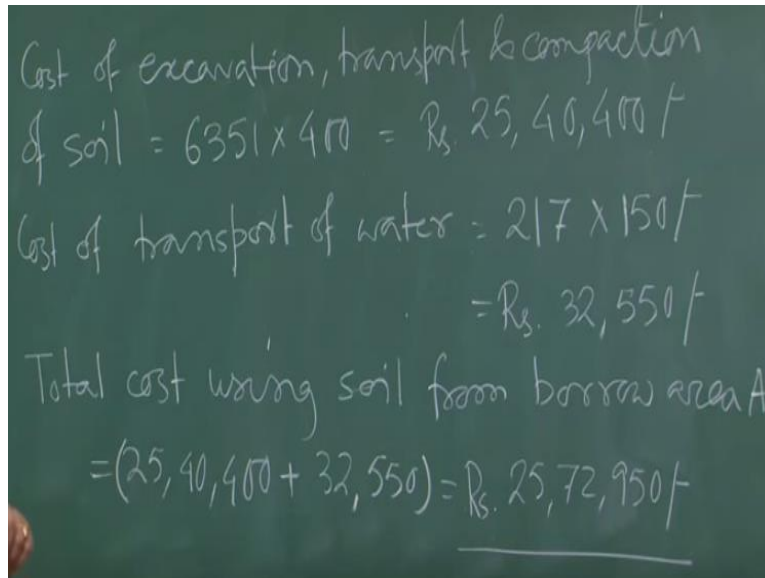 Cost of excavation, transport & compaction
of soil = 6351 x 400 = Rs. 25,40,400/-
Cost of transport of water = 217 x 150/-
= Rs. 32,550/-
Total cost using soil from borrow area A
=(25,40,400 + 32,550) = Rs. 25,72,950/-